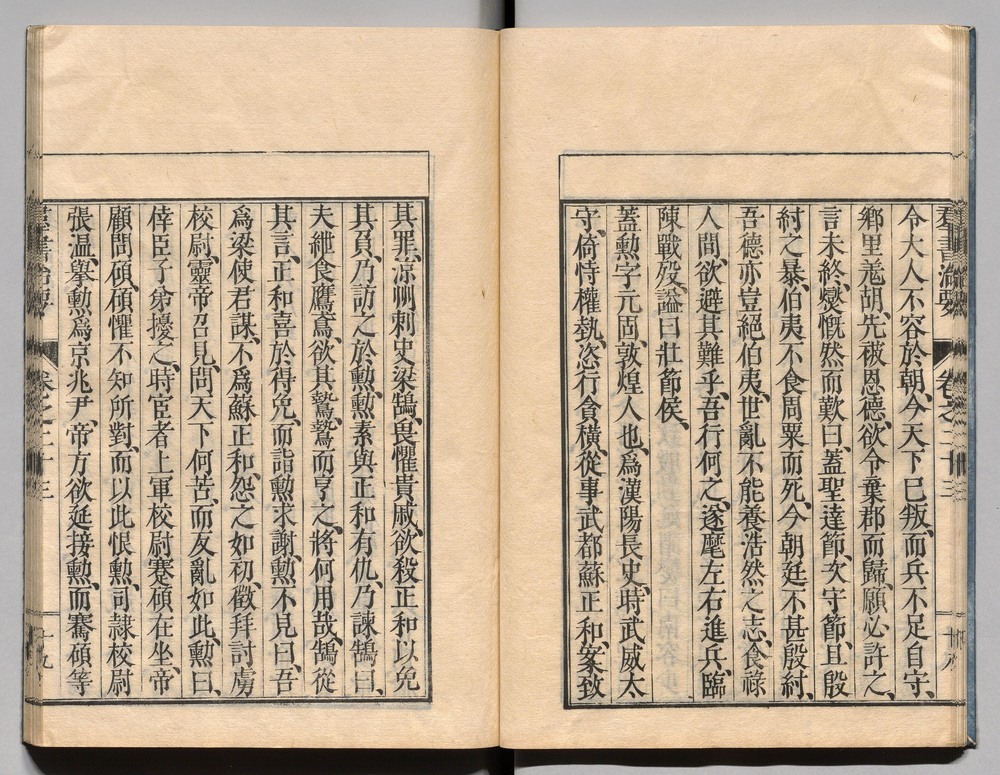 羣書治要 卷之二十三 十八
令大人不容於朝、今天下已叛、而兵不足自守、
鄉里羗胡、先被恩德、欲令棄郡而歸、願必許之、
言未終、爕慨然而歎曰、蓋聖達節、次守節、且殷
紂之暴、伯夷不食周粟而死、今朝廷不甚殷紂、
吾德亦豈絕伯夷、世亂不能養浩然之志、食祿
人間、欲避其難乎、吾行何之、遂麾左右進兵、臨
陳戰殁、謚曰壯節侯、
蓋勲字元固、敦煌人也、爲漢陽長史、時武威太
守、倚恃權埶、恣行貪橫、從事武都蘇正和、案致
其罪、凉州刺史梁鵠、畏懼貴戚、欲殺正和以免
其負、乃訪之於勲、勲素與正和有仇、乃諫鵠曰、
夫紲食鷹鳶、欲其鷙、鷙而亨之、將何用哉、鵠從
其言、正和喜於得免、而詣勲求謝、勲不見曰、吾
爲梁使君謀、不爲蘇正和、怨之如初、徵拜討虜
校尉、靈帝召見、問天下何苦、而反亂如此、勲曰、
倖臣子弟擾之、時宦者上軍校尉蹇碩、在坐、帝
顧問碩、碩懼不知所對、而以此恨勲、司隷校尉
張温、擧勲爲京兆尹、帝方欲延接勲、而蹇碩等
羣書治要 卷之二十三 十九